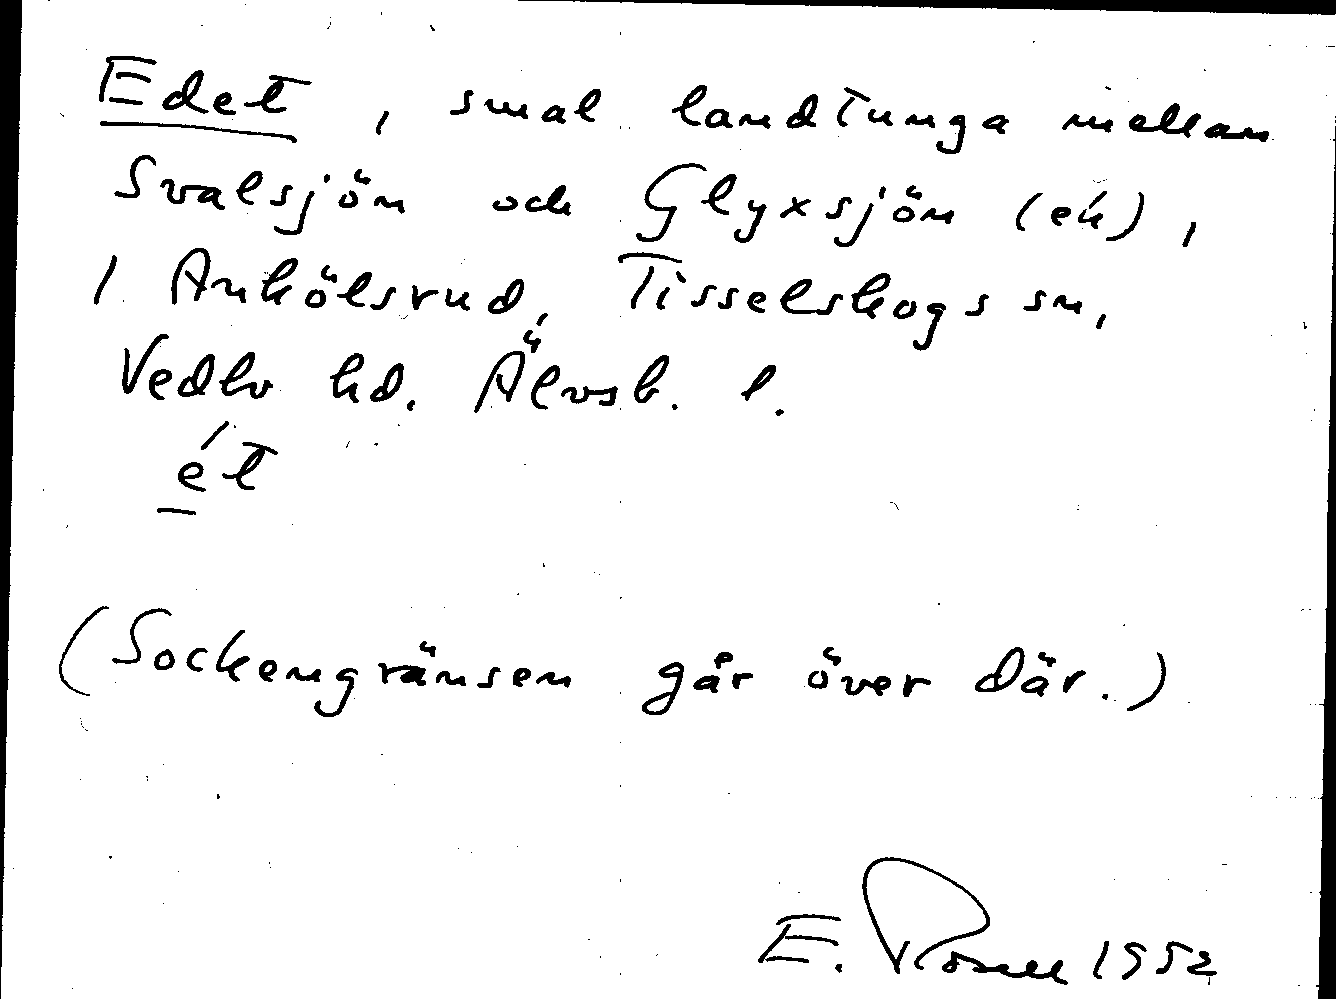 Edet, smal landtunga mellan
Svalsjön och Glyxsjön (ek),
i Ankölsrud, Tisselskogs sn,
Vedbo hd. Älvsb. l.
ét
(Sockengränsen går över där.)
E. Rosell 1952